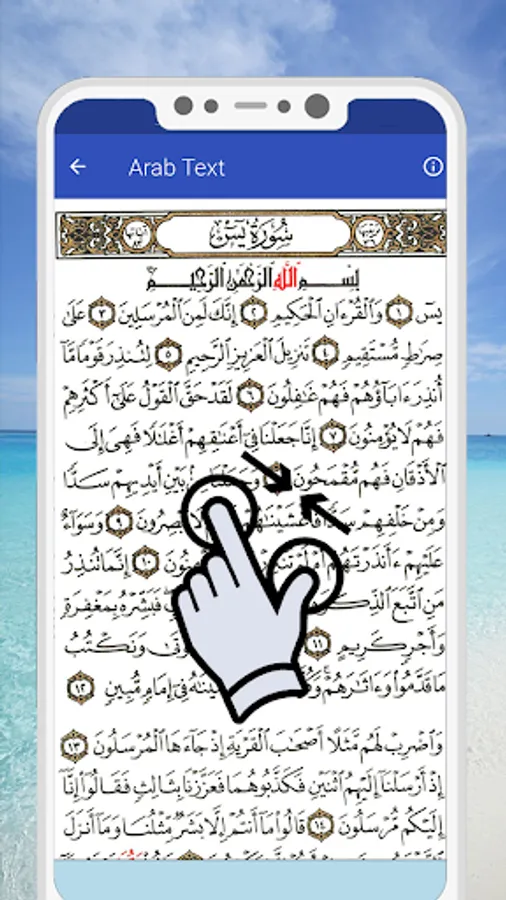 Arab Text
سُورَةُ يسٓ
بِسْمِ ٱللَّهِ ٱلرَّحْمَٰنِ ٱلرَّحِيمِ
يسٓ ١ وَٱلْقُرْءَانِ ٱلْحَكِيمِ ٢ إِنَّكَ لَمِنَ ٱلْمُرْسَلِينَ ٣ عَلَىٰ
صِرَٰطٍ مُّسْتَقِيمٍ ٤ تَنزِيلَ ٱلْعَزِيزِ ٱلرَّحِيمِ ٥ لِتُنذِرَ قَوْمًا مَّآ
أُنذِرَ ءَابَآؤُهُمْ فَهُمْ غَٰفِلُونَ ٦ لَقَدْ حَقَّ ٱلْقَوْلُ عَلَىٰٓ أَكْثَرِهِمْ
فَهُمْ لَا يُؤْمِنُونَ ٧ إِنَّا جَعَلْنَا فِىٓ أَعْنَٰقِهِمْ أَغْلَٰلًا فَهِىَ إِلَى
ٱلْأَذْقَانِ فَهُم مُّقْمَحُونَ وَجَعَلْنَا مِنۢ بَيْنِ أَيْدِيهِمْ سَدًّا
وَمِنْ خَلْفِهِمْ سَدًّا فَأَغْشَيْنَٰهُمْ لَا يُبْصِرُونَ ٩ وَسَوَآءٌ
عَلَيْهِمْ ءَأَنذَرْتَهُمْ أَمْ ١٠ إِنَّمَا تُنذِرُ
مَنِ ٱتَّبَعَ فَبَشِّرْهُ بِمَغْفِرَةٍ
وَأَجْرٍ كَرِيمٍ ١١ وَنَكْتُبُ
مَا قَدَّمُوا۟ وَءَاثَٰرَهُمْ فِىٓ إِمَامٍ مُّبِينٍ ١٢
وَٱضْرِبْ لَهُم مَّثَلًا أَصْحَٰبَ ٱلْقَرْيَةِ إِذْ جَآءَهَا ٱلْمُرْسَلُونَ ١٣
إِذْ أَرْسَلْنَآ إِلَيْهِمُ ٱثْنَيْنِ فَكَذَّبُوهُمَا فَعَزَّزْنَا بِثَالِثٍ فَقَالُوٓا۟ إِنَّآ
إِلَيْكُم مُّرْسَلُونَ ١٤ قَالُوا۟ مَآ أَنتُمْ إِلَّا بَشَرٌ مِّثْلُنَا وَمَآ أَنزَلَ